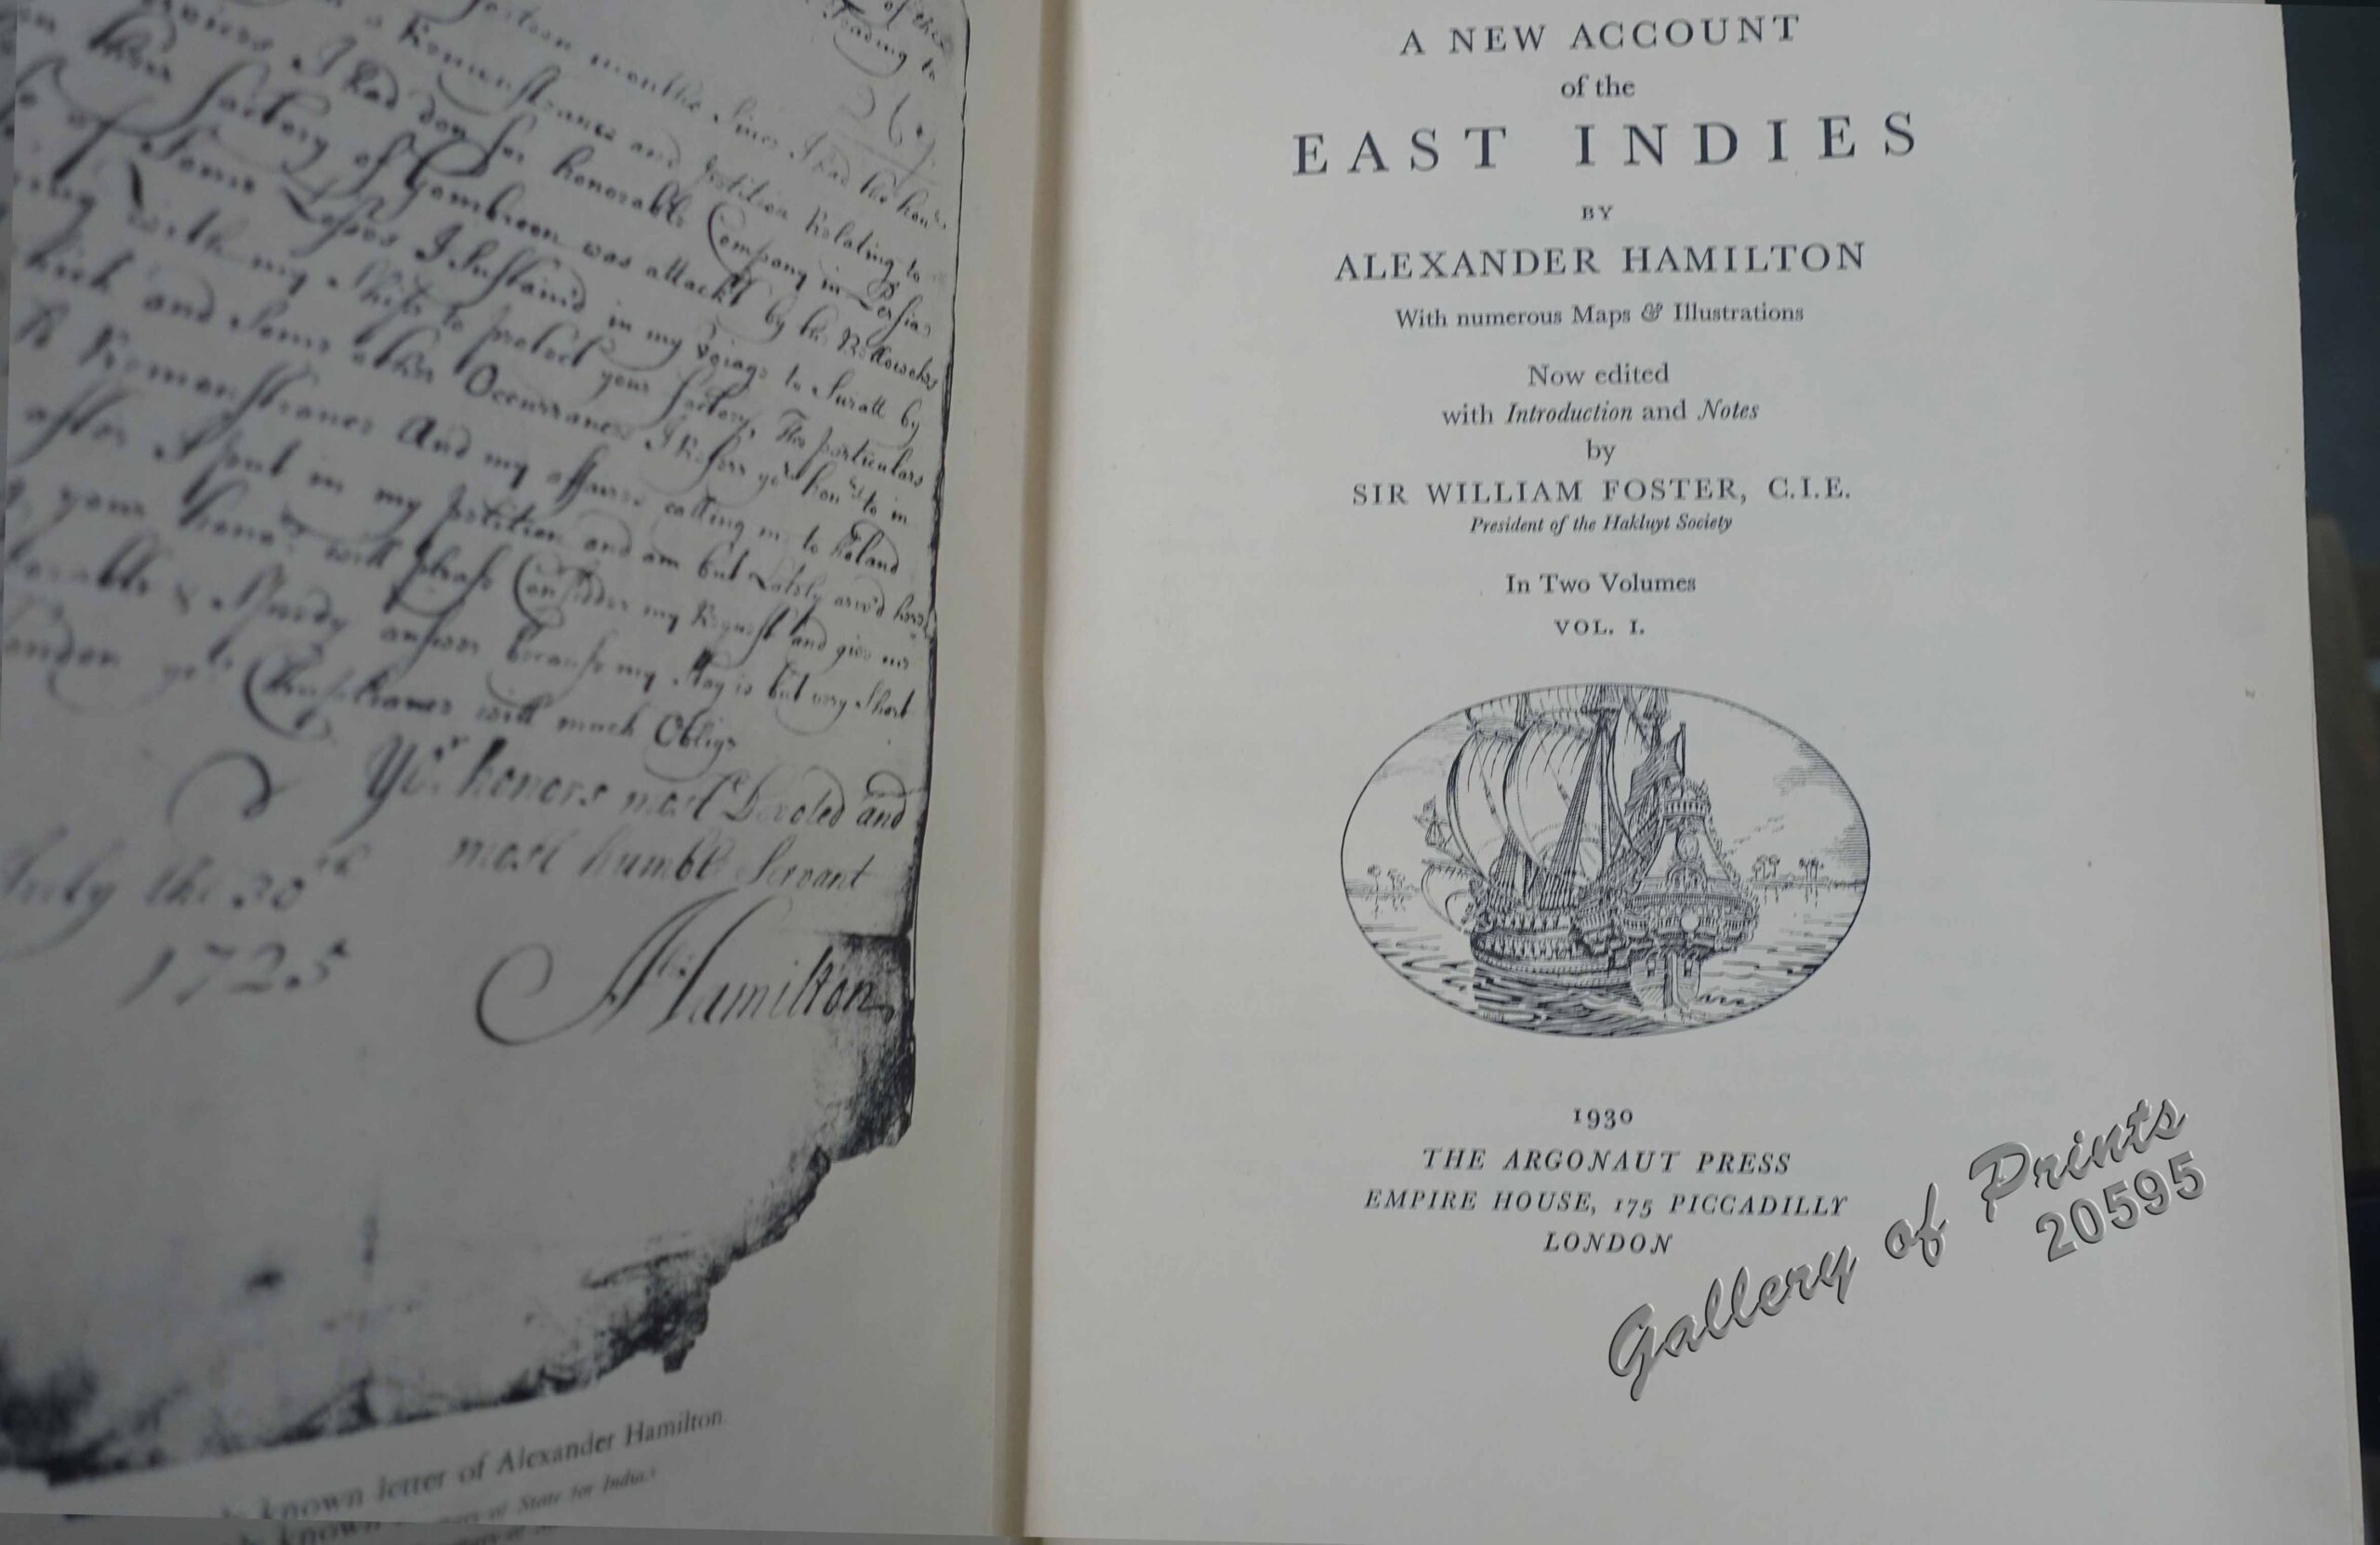 of this
Trading to
267
months Since I had the honr.
a Remonstrance and petition Relating to
I had don for honorable Company in Persia,
factory of Gombroon was attackt by the Ballowches
of Some Losses I Sustain'd in my Voiage to Suratt by
with my Ship to protect your factory, The particulars
and Some other Occurrances I Referr yor honrs. to in
Remonstrance And my affairs calling me to Holand
after I put in my petition and am but Lately arriv'd here
your honors will please Consider my Request and give me
& Speedy answer because my Stay is but very Short
will much Oblige
Yor. honors most Devoted and
most humble Servant
July the 30th
1725
A Hamilton
known letter of Alexander Hamilton.
of State for India.)
A NEW ACCOUNT
of the
EAST INDIES
BY
ALEXANDER HAMILTON
With numerous Maps & Illustrations
Now edited
with Introduction and Notes
by
SIR WILLIAM FOSTER, C.I.E.
President of the Hakluyt Society
In Two Volumes
VOL. I.
1930
THE ARGONAUT PRESS
EMPIRE HOUSE, 175 PICCADILLY
LONDON
Gallery of Prints
20595